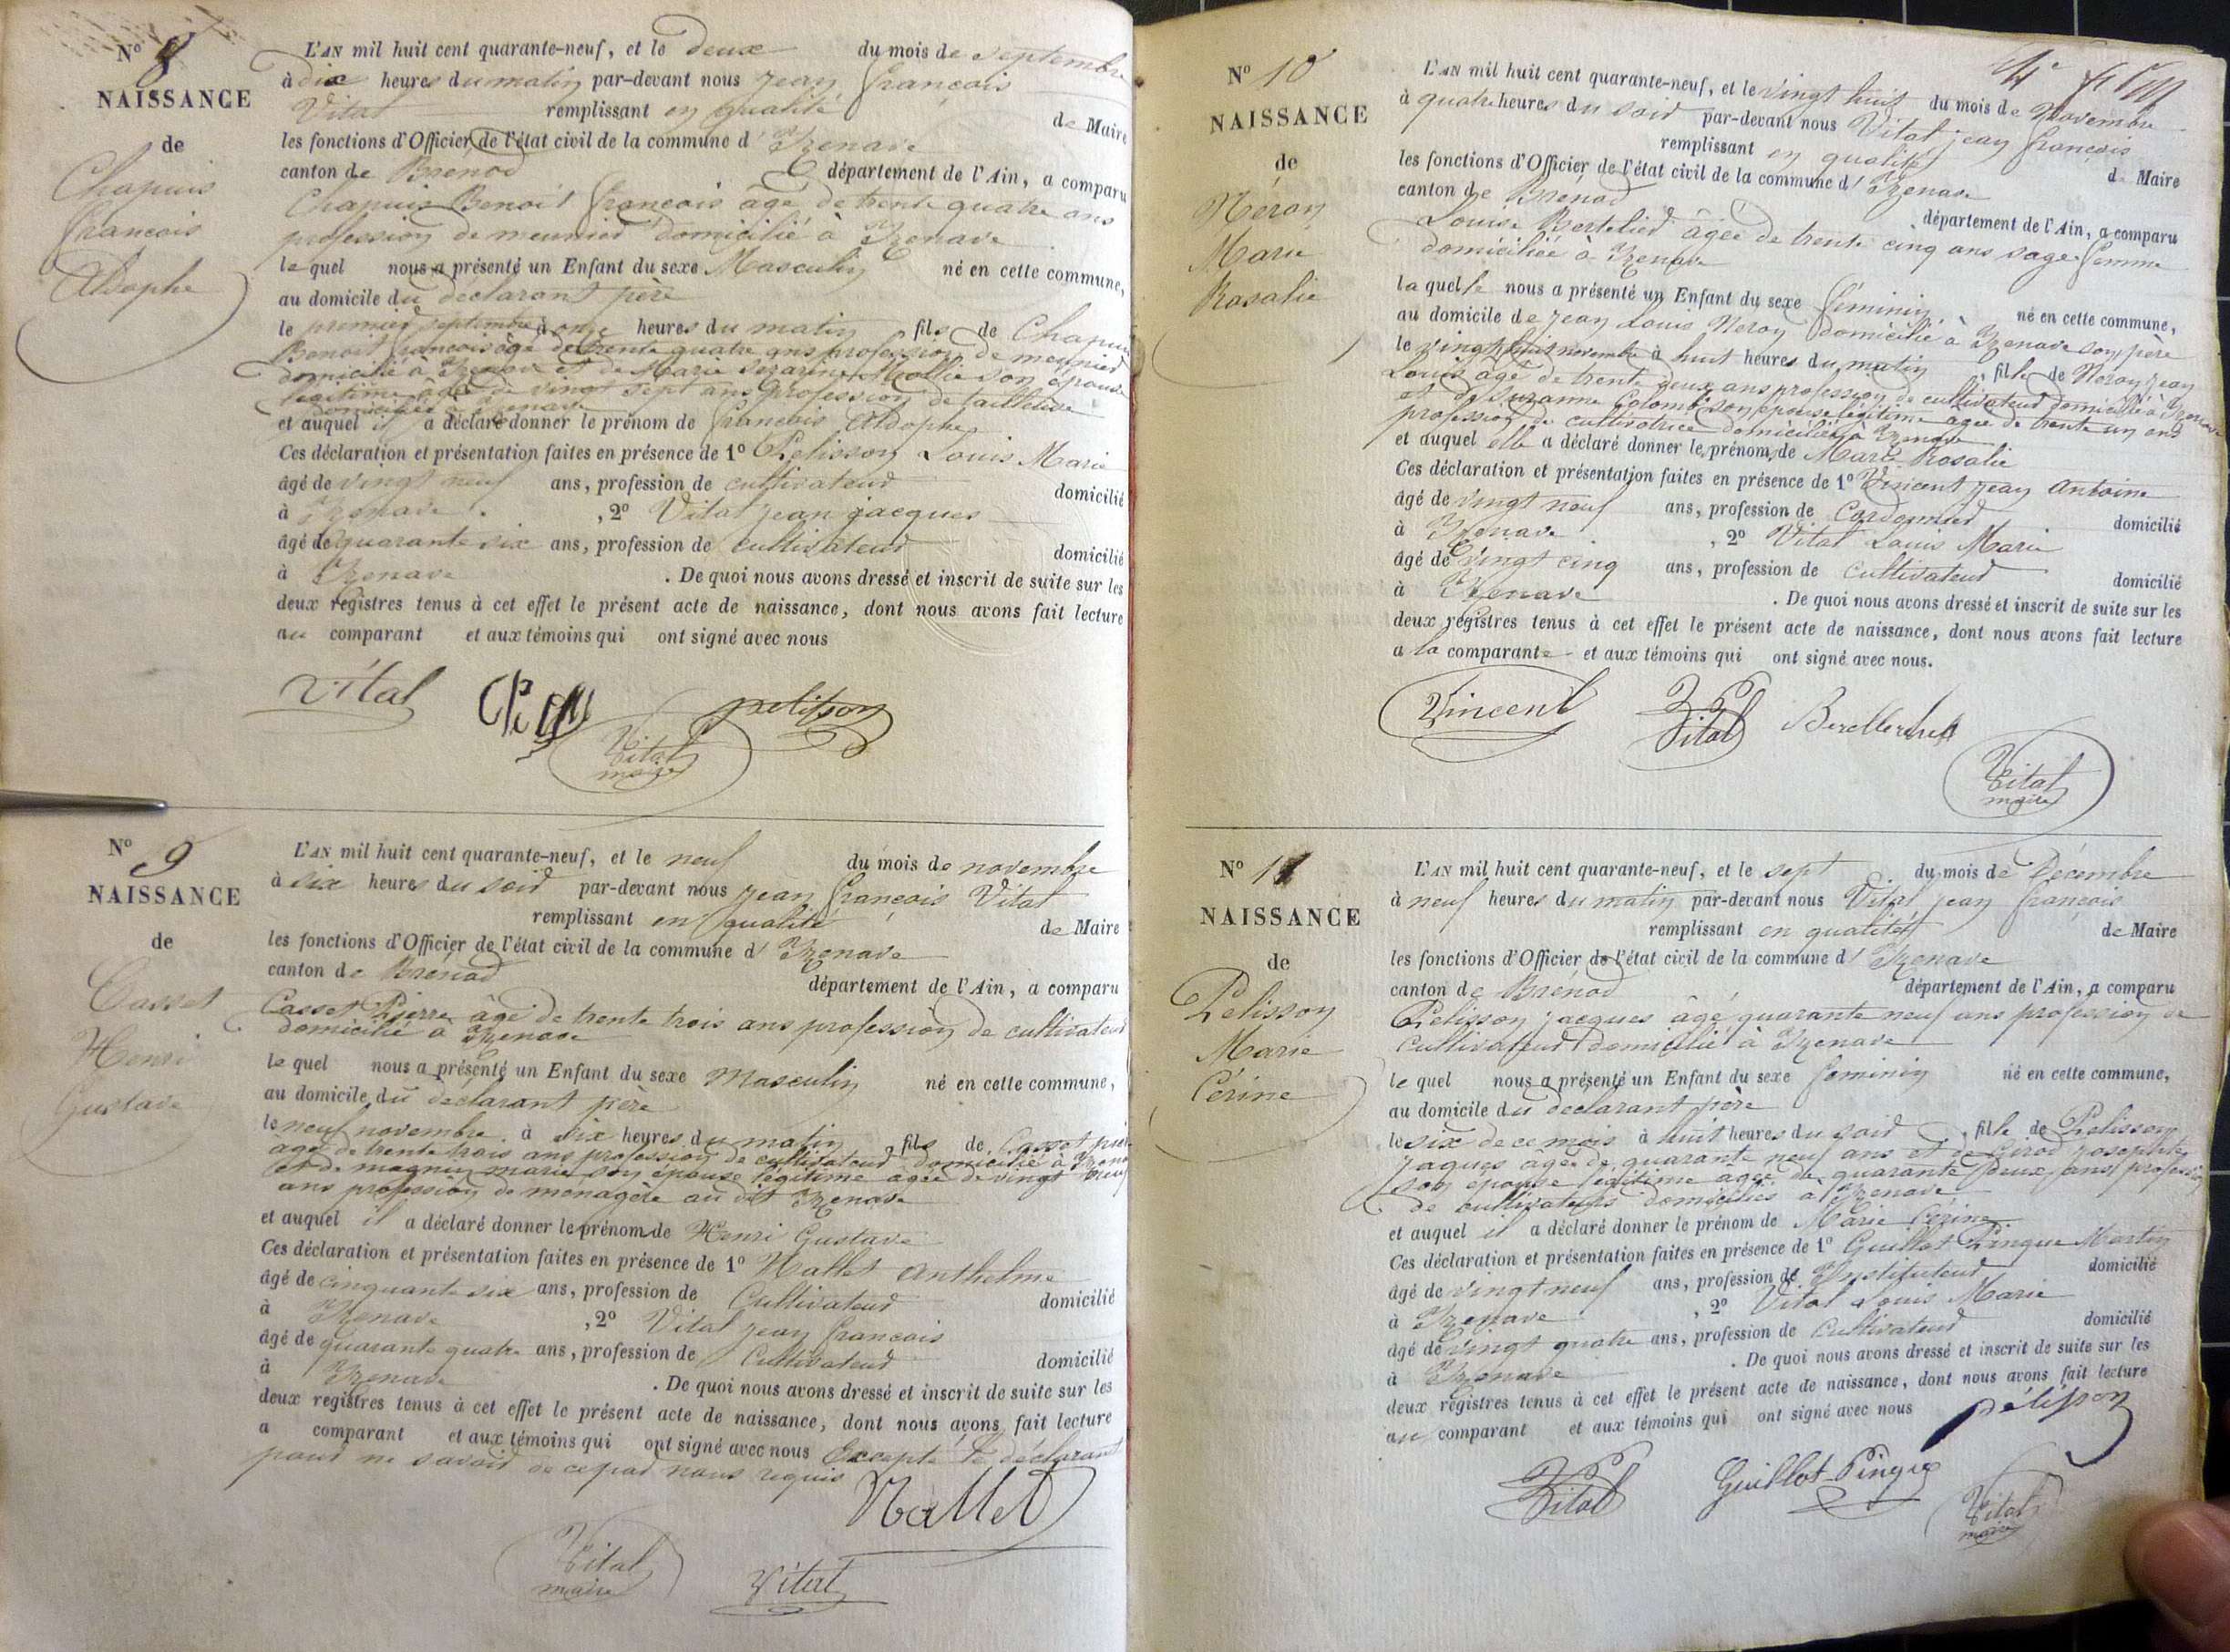 N° 8
NAISSANCE
de
Chapuis
françois
Aldophe
L'AN mil huit cent quarante-neuf, et le deux du mois de septembre
à dix heures du matin par-devant nous jean françois
Vital remplissant en qualité de Maire
les fonctions d'Officier de l'état civil de la commune d' Izenave
canton de Brénod département de l'Ain, a comparu
Chapuis Benoit françois âgé de trente quatre ans
profession de meunier domicilié à Izenave
le quel nous a présenté un Enfant du sexe Masculin né en cette commune,
au domicile du déclarant père
le premier septembre à onze heures du matin fils de Chapuis
Benoit françois âgé de trente quatre ans profession de meunier
domicilié à Izenave et de Marie Mollie son épouse
légitime âgée de vingt sept ans profession de tailleuse
domiciliée à Izenave
et auquel il a déclaré donner le prénom de françois Aldophe
Ces déclaration et présentation faites en présence de 1° Pelisson Louis Marie
âgé de vingt neuf ans, profession de cultivateur domicilié
à Izenave. , 2° Vital jean jacques
âgé de quarante six ans, profession de cultivateur domicilié
à Izenave . De quoi nous avons dressé et inscrit de suite sur les
deux registres tenus à cet effet le présent acte de naissance, dont nous avons fait lecture
au comparant et aux témoins qui ont signé avec nous
Vital pelisson
Vital
maire
N° 9
NAISSANCE
de
Casset
Henri
Gustave
L'AN mil huit cent quarante-neuf, et le neuf du mois de novembre
à six heures du soir par-devant nous jean françois Vital
remplissant en qualité de Maire
les fonctions d'Officier de l'état civil de la commune d' Izenave
canton de Brénod département de l'Ain, a comparu
Casset Pierre âgé de trente trois ans profession de cultivateur
domicilié à Izenave
le quel nous a présenté un Enfant du sexe Masculin né en cette commune,
au domicile du déclarant père
le neuf novembre à six heures du matin, fils de Casset pierre
âgé de trente trois ans profession de cultivateur domicilié à Izenave
et de magnin marie son épouse légitime âgée de vingt neuf
ans profession de ménagère au dit Izenave
et auquel il a déclaré donner le prénom de Henri Gustave
Ces déclaration et présentation faites en présence de 1° Nallet Anthelme
âgé de cinquante six ans, profession de Cultivateur domicilié
à Izenave , 2° Vital jean françois
âgé de quarante quatre ans, profession de Cultivateur domicilié
à Izenave . De quoi nous avons dressé et inscrit de suite sur les
deux registres tenus à cet effet le présent acte de naissance, dont nous avons fait lecture
a comparant et aux témoins qui ont signé avec nous excepté le déclarant
pour ne savoir de ce par nous requis
Nallet
Vital
maire
Vital
N° 10
NAISSANCE
de
Néron
Marie
Rosalie
L'AN mil huit cent quarante-neuf, et le vingt huit du mois de Novembre
à quatre heures du soir par-devant nous Vital jean françois
remplissant en qualité de Maire
les fonctions d'Officier de l'état civil de la commune d' Izenave
canton de Brénod département de l'Ain, a comparu
Louise Bertelier âgée de trente cinq ans sage femme
domiciliée à Izenave
la quelle nous a présenté un Enfant du sexe féminin, né en cette commune,
au domicile de jean Louis Neron domicilié à Izenave son père
le vingt huit novembre à huit heures du matin, fille de Neron jean
Louis âgé de trente deux ans profession de cultivateur domicilié à Izenave
et de Suzanne Colomb son épouse légitime âgée de trente un ans
profession de cultivatrice domiciliée à Izenave
et auquel elle a déclaré donner le prénom de Marie Rosalie
Ces déclaration et présentation faites en présence de 1° Vincent jean Antoine
âgé de vingt neuf ans, profession de Cordonnier domicilié
à Izenave. , 2° Vital Louis Marie
âgé de vingt cinq ans, profession de cultivateur domicilié
à Izenave . De quoi nous avons dressé et inscrit de suite sur les
deux registres tenus à cet effet le présent acte de naissance, dont nous avons fait lecture
a la comparante et aux témoins qui ont signé avec nous.
Vincent Vital
Vital
maire
N° 11
NAISSANCE
de
Pelisson
Marie
Cérine
L'AN mil huit cent quarante-neuf, et le sept du mois de Décembre
à neuf heures du matin par-devant nous Vital jean françois
remplissant en qualité de Maire
les fonctions d'Officier de l'état civil de la commune d' Izenave
canton de Brénod département de l'Ain, a comparu
Pelisson jacques âgé quarante neuf ans profession de
cultivateur domicilié à Izenave
le quel nous a présenté un Enfant du sexe feminin né en cette commune,
au domicile du déclarant père
le six de ce mois à huit heures du soir, fille de Pelisson
jaques âgé de quarante neuf ans et de Girod josephte
son épouse légitime âgée de quarante deux ans profession
de cultivateurs domiciliés à Izenave
et auquel il a déclaré donner le prénom de Marie Cérine
Ces déclaration et présentation faites en présence de 1° Guillot Pingue Martin
âgé de vingt neuf ans, profession de Instituteur domicilié
à Izenave , 2° Vital Louis Marie
âgé de vingt quatre ans, profession de Cultivateur domicilié
à Izenave . De quoi nous avons dressé et inscrit de suite sur les
deux registres tenus à cet effet le présent acte de naissance, dont nous avons fait lecture
au comparant et aux témoins qui ont signé avec nous
Pélisson
Vital Guillot-Pingue
Vital
maire